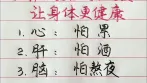 让身体更健康
1.心：怕累
2.肝：怕酒
3.脑：怕熬夜